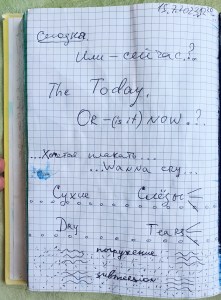 Сводка.
Или – сейчас.?
The Today,
OR – (is it) NOW.?
...Хочется плакать...
...Wanna cry...
Сухие Слёзы
Dry Tears
погружение
submersion